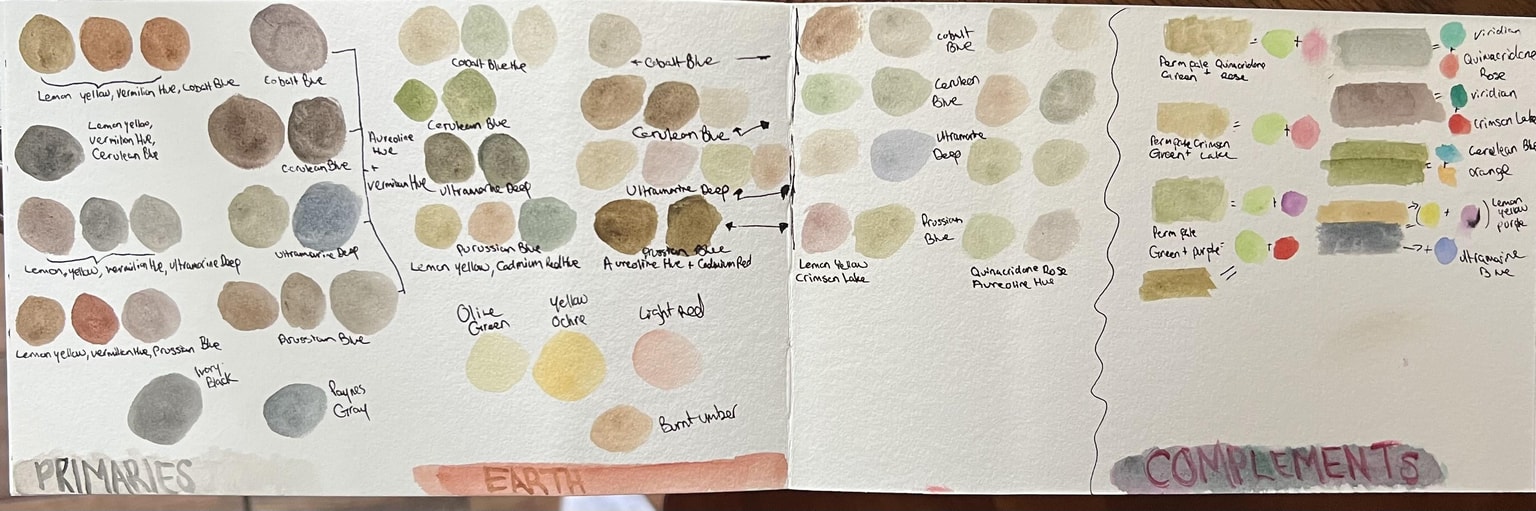 Lemon yellow, vermilion Hue, Cobalt Blue
Cobalt Blue
Lemon yellow,
vermilion Hue,
Cerulean Blue
Cerulean Blue
Aureoline
Hue
+
vermilion Hue
Lemon, yellow, vermilion Hue, Ultramarine Deep
Ultramarine Deep
Lemon yellow, vermilion Hue, Prussian Blue
Prussian Blue
Ivory
Black
Paynes
Gray
PRIMARIES
Cobalt Blue Hue
Cerulean Blue
Ultramarine Deep
Purussian Blue
Lemon yellow, Cadmium Red Hue
Cobalt Blue
Cerulean Blue
Ultramarine Deep
Prussian Blue
Aureoline Hue + Cadmium Red
Olive
Green
Yellow
Ochre
Light Red
Burnt Umber
EARTH
Cobalt
Blue
Cerulean
Blue
Ultramarine
Deep
Prussian
Blue
Lemon Yellow
Crimson Lake
Quinacridone Rose
Aureoline Hue
= +
Perm pale Quinacridone
Green + Rose
= +
Perm pale Crimson
Green + Lake
= +
Perm pale
Green + purple =
+
=
= viridian
+ Quinacridone
Rose
= viridian
+ crimson Lake
= Cerulean Blue
+ orange
→ ( + ) Lemon
yellow
purple
→ ultramarine
Blue
COMPLEMENTS